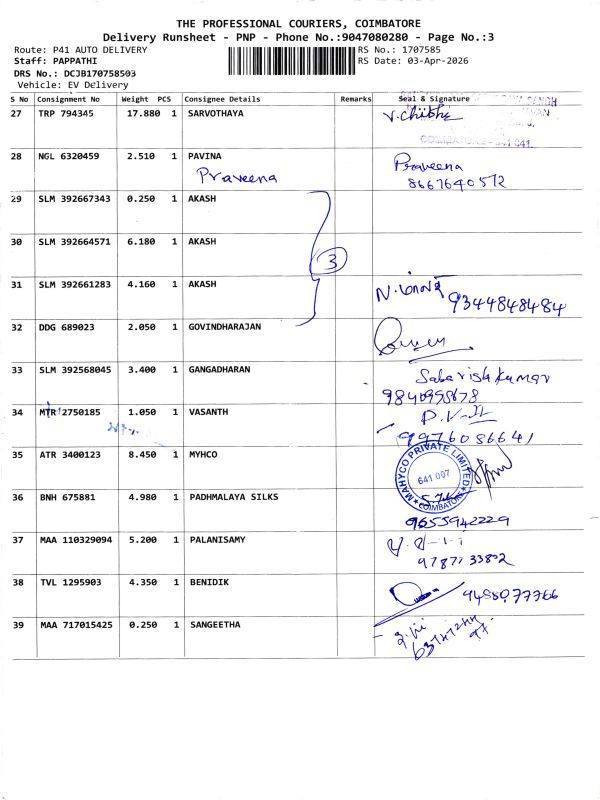 THE PROFESSIONAL COURIERS, COIMBATORE
Delivery Runsheet - PNP - Phone No.:9047080280 - Page No.:3
Route: P41 AUTO DELIVERY
RS No.: 1707585
Staff: PAPPATHI
RS Date: 03-Apr-2026
DRS No.: DCJB170758503
Vehicle: EV Delivery
S No Consignment No Weight PCS Consignee Details Remarks Seal & Signature
27 TRP 794345 17.880 1 SARVOTHAYA V.Chithe
COIMBATORE - 641 041.
28 NGL 6320459 2.510 1 PAVINA Praveena
Praveena 8667640572
29 SLM 392667343 0.250 1 AKASH
30 SLM 392664571 6.180 1 AKASH
3
31 SLM 392661283 4.160 1 AKASH
9344848484
32 DDG 689023 2.050 1 GOVINDHARAJAN
33 SLM 392568045 3.400 1 GANGADHARAN Sabarishkumar
9840998678
34 MTR 2750185 1.050 1 VASANTH
9976086641
35 ATR 3400123 8.450 1 MYHCO
MAHYCO PRIVATE LIMITED
641 007
COIMBATORE
36 BNH 675881 4.980 1 PADHMALAYA SILKS
9655942229
37 MAA 110329094 5.200 1 PALANISAMY
9787133802
38 TVL 1295903 4.350 1 BENIDIK 9488077766
39 MAA 717015425 0.250 1 SANGEETHA